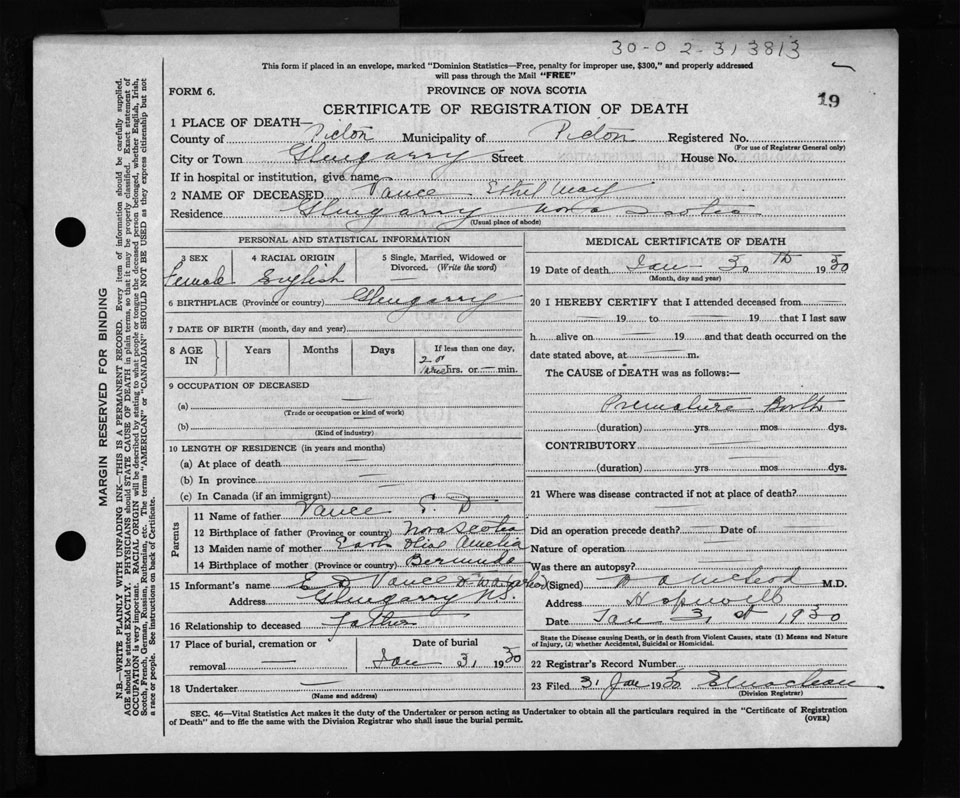 30-0 2-313813
This form if placed in an envelope, marked "Dominion Statistics—Free, penalty for improper use, $300," and properly addressed
will pass through the Mail "FREE"
FORM 6. PROVINCE OF NOVA SCOTIA
19
CERTIFICATE OF REGISTRATION OF DEATH
1 PLACE OF DEATH—
County of Pictou Municipality of Pictou Registered No.
(For use of Registrar General only)
City or Town Glengarry Street House No.
If in hospital or institution, give name
2 NAME OF DECEASED Vance Ethel May
Residence Glengarry Nova Scotia
(Usual place of abode)
PERSONAL AND STATISTICAL INFORMATION
3 SEX 4 RACIAL ORIGIN 5 Single, Married, Widowed or
Divorced. (Write the word)
Female English
6 BIRTHPLACE (Province or country) Glengarry
7 DATE OF BIRTH (month, day and year)
8 AGE IN Years Months Days If less than one day,
2 or hrs. or — min.
9 OCCUPATION OF DECEASED
(a)
(Trade or occupation or kind of work)
(b)
(Kind of industry)
10 LENGTH OF RESIDENCE (in years and months)
(a) At place of death —
(b) In province —
(c) In Canada (if an immigrant) —
Parents
11 Name of father Vance E. D
12 Birthplace of father (Province or country) Nova Scotia
13 Maiden name of mother Amelia
14 Birthplace of mother (Province or country) Bermuda
15 Informant's name E D Vance
Address Glengarry N.S.
16 Relationship to deceased father
17 Place of burial, cremation or Date of burial
removal — Jan 31 1930
18 Undertaker —
(Name and address)
MEDICAL CERTIFICATE OF DEATH
19 Date of death Jan 30 th 1930
(Month, day and year)
20 I HEREBY CERTIFY that I attended deceased from —
— 19 — to — 19 — that I last saw
h — alive on — 19 — and that death occurred on the
date stated above, at — m.
The CAUSE of DEATH was as follows:—
Premature Birth
(duration) — yrs — mos — dys.
CONTRIBUTORY —
(duration) — yrs — mos — dys.
21 Where was disease contracted if not at place of death? —
Did an operation precede death? — Date of —
Nature of operation —
Was there an autopsy? —
(Signed) McLeod M.D.
Address Hopewell
Date Jan 31 st 1930
State the Disease causing Death, or in death from Violent Causes, state (1) Means and Nature
of Injury, (2) whether Accidental, Suicidal or Homicidal.
22 Registrar's Record Number
23 Filed 31 Jan 1930
(Division Registrar)
SEC. 46—Vital Statistics Act makes it the duty of the Undertaker or person acting as Undertaker to obtain all the particulars required in the "Certificate of Registration
of Death" and to file the same with the Division Registrar who shall issue the burial permit. (OVER)
MARGIN RESERVED FOR BINDING
N.B.—WRITE PLAINLY WITH UNFADING INK—THIS IS A PERMANENT RECORD. Every item of information should be carefully supplied.
AGE should be stated EXACTLY. PHYSICIANS should STATE CAUSE OF DEATH in plain terms, so that it may be properly classified. Exact statement of
OCCUPATION is very important. RACIAL ORIGIN will be described by stating to what people or tongue the deceased person belonged, whether English, Irish,
Scotch, French, German, Russian, Ruthenian, etc. The terms "AMERICAN" or "CANADIAN" SHOULD NOT BE USED as they express citizenship but not
a race or people. See instructions on back of Certificate.